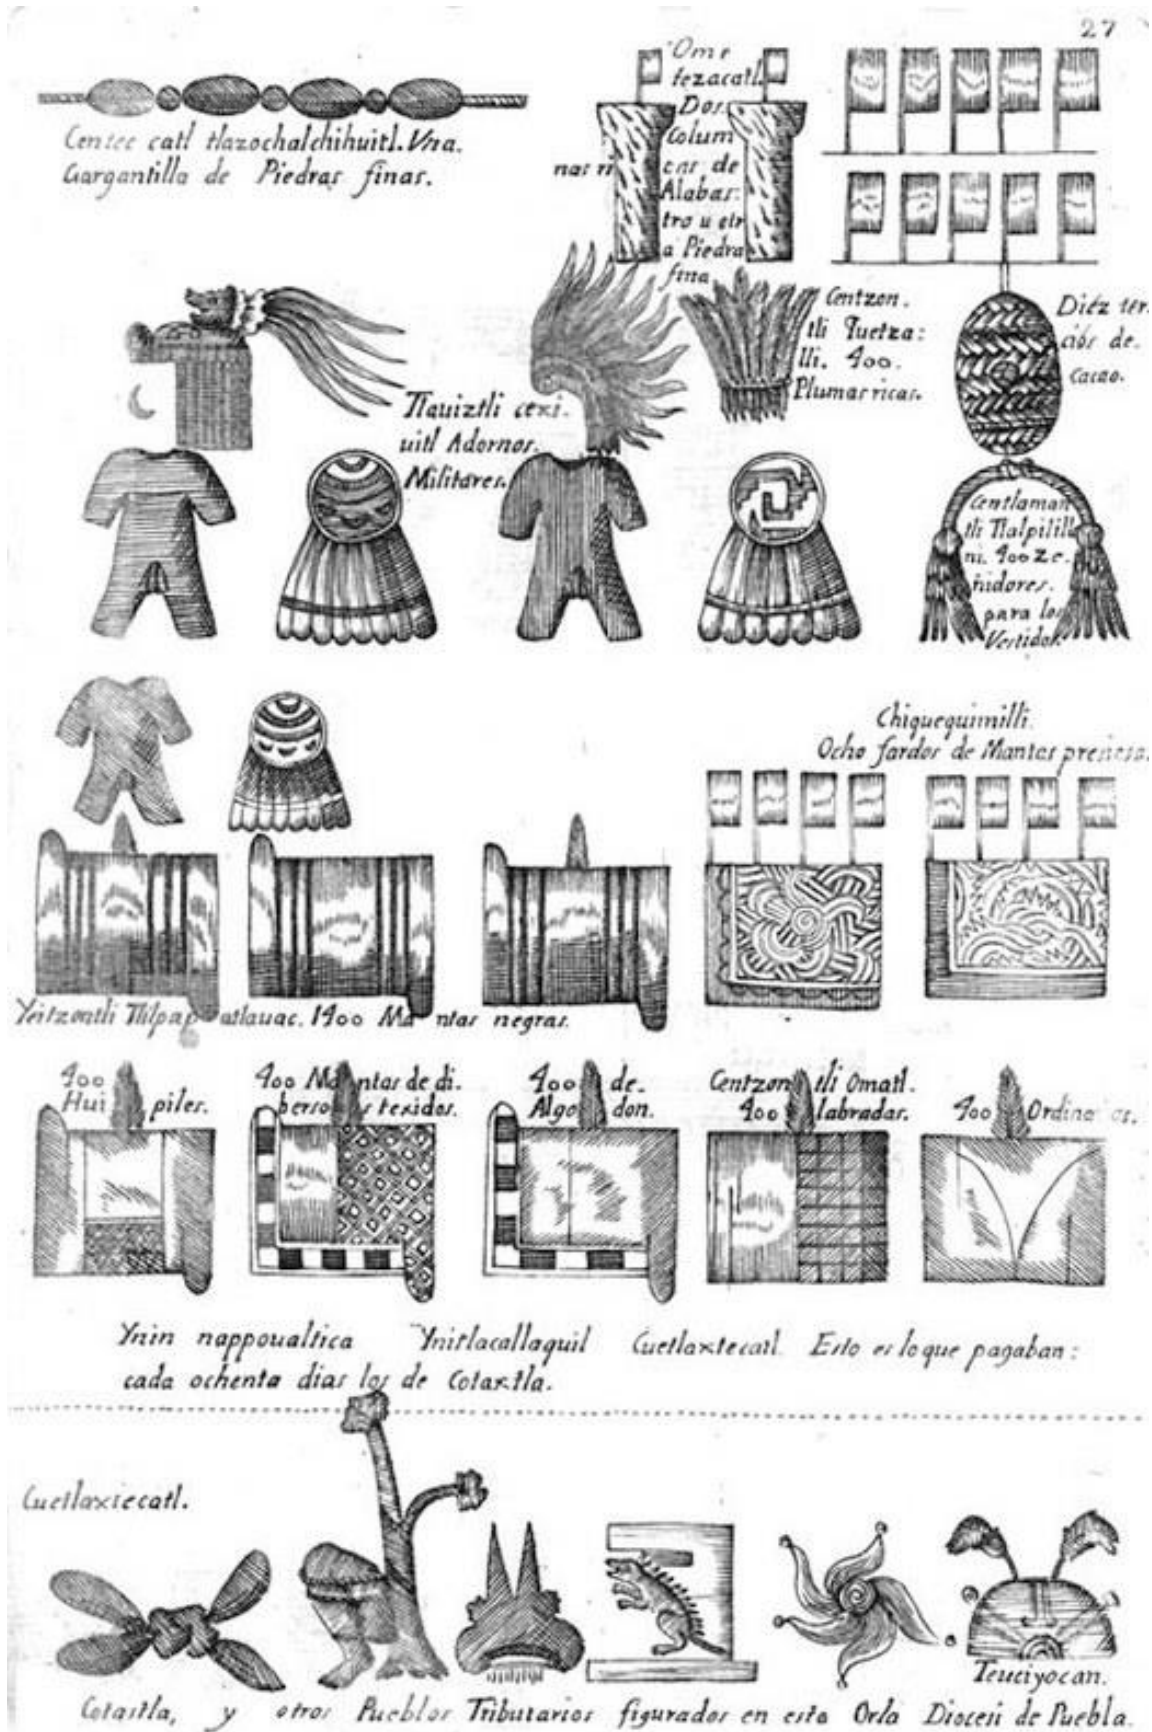 27
Centec catl tlazochalchihuitl. Vna.
Gargantilla de Piedras finas.
Ome
tezacatl.
Dos.
Colum
nas ri cas de
Alabas:
tro u otr
a Piedra
fina
Centzon.
tli Quetza:
lli. 400.
Plumas ricas.
Diéz ter.
cios de.
cacao.
Tlauiztli cexi.
uitl Adornos.
Militares.
Centlaman
tli Tlalpilill
ni. 400 Ze.
ñidores.
para los
Vestidos.
Chiquequimilli.
Ocho fardos de Mantas presiosa.
Yeitzontli Tlilpap atlauac. 1400 Ma ntas negras.
400
Hui piles.
400 Ma ntas de di.
berso s texidos.
400 de.
Algo don.
Centzon tli Omatl.
400 labradas.
400 Ordina as.
Ynin nappoualtica Ynitlacallaquil Cuetlaxtecatl. Esto es lo que pagaban:
cada ochenta dias los de Cotaxtla.
Cuetlaxtecatl.
Teuciyocan.
Cotastla, y otros Pueblos Tributarios figurados en esta Orla Diocesi de Puebla.